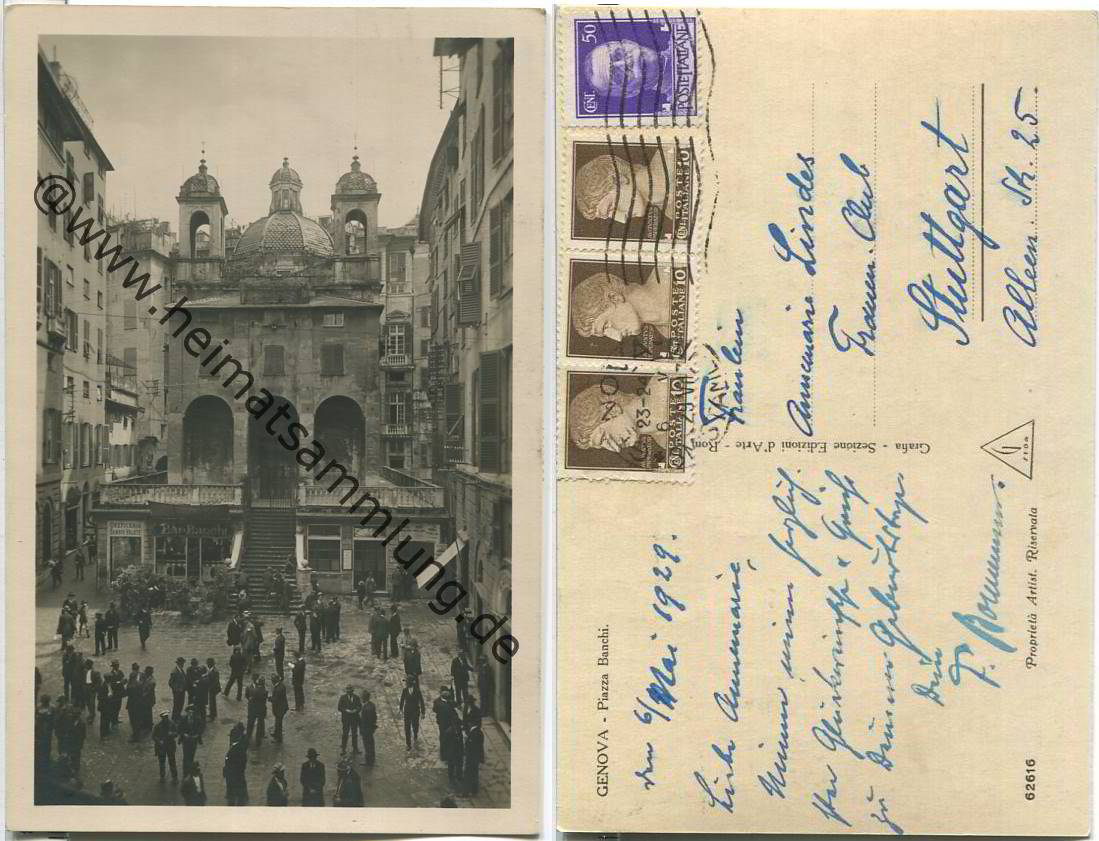 @www.heimatsammlung.de
Bar Banchi
GENOVA - Piazza Banchi.
den 6/Mai 1929.
Liebe Annemarie,
Nimm meinen herzlichsten
Glückwünsche & Grüsse
zu Deinem Geburtstage.
Dein
62616
Proprietà Artist. Riservata
Grafia - Sezione Edizioni d'Arte - Roma
CENT. 50
POSTE ITALIANE
10 POSTE ITALIANE
10 POSTE ITALIANE
10 POSTE ITALIANE
23-24
Fräulein
Annemarie Lindes
Frauen-Club
Stuttgart
Alleen Str. 25